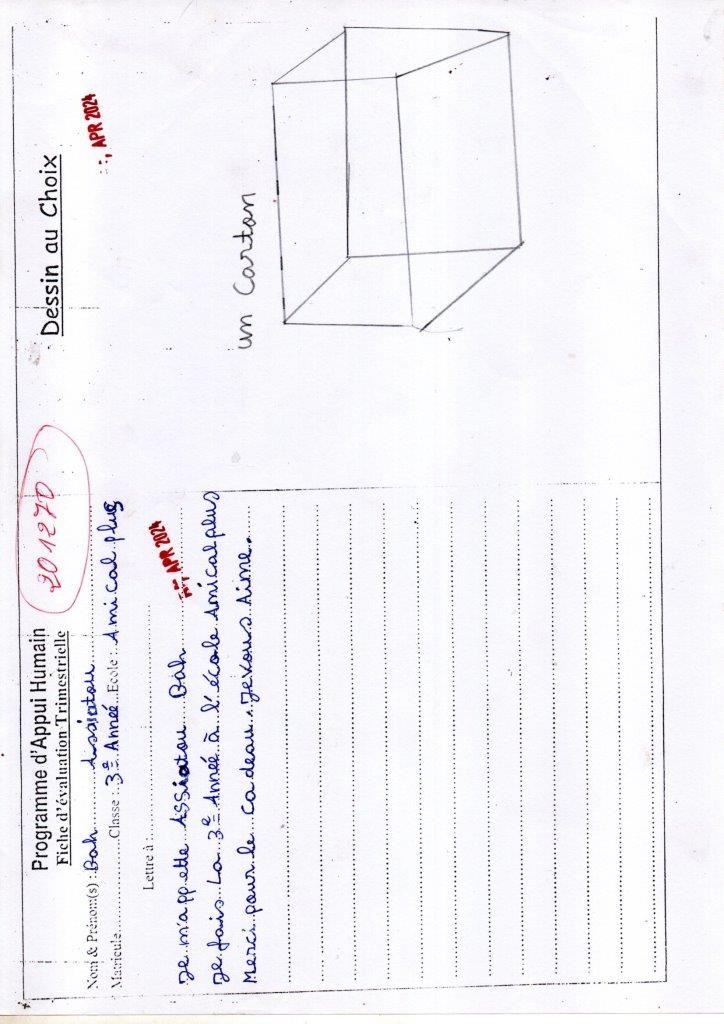 Programme d'Appui Humain
Fiche d'évaluation Trimestrielle
201270
Nom & Prénom(s) : Bah Assiatou
Matricule Classe : 3e Année Ecole : Amical plus
Lettre à :
APR 2024
Je m'appelle Assiatou Bah
Je fais La 3e Année à l'école Amical plus
Merci pour le cadeau. Je vous Aime.
Dessin au Choix
APR 2024
un Carton